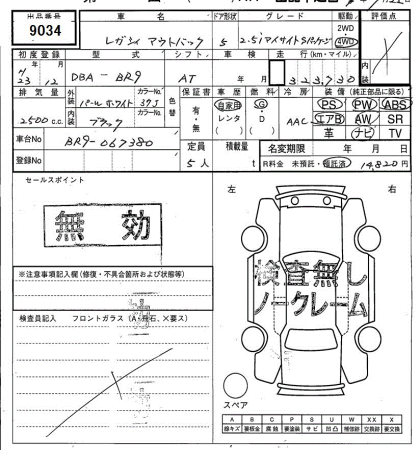 出品番号 車名 ドア形状 グレード 駆動 評価点
9034 レガシィ アウトバック 5 2.5i アイサイト Sパッケージ 2WD 4WD
初度登録 型式 シフト 車検 走行(km・マイル) 内装
23年 12月 DBA-BR9 AT 年 月 323730
排気量 外装 カラーNo. 色替 保証書 車歴 燃料 冷房 装備(純正部品に限る)
2500 c.c. パールホワイト 37J 有・無 自家用 レンタ ( ) G・D ( ) AAC PS PW ABS
内装 カラーNo. ブラック エアB AW SR
車台No BR9-067380 革 ナビ TV
登録No 定員 5人 積載量 t 名変期限 年 月 日
R料金 未預託・預託済 14,820円
セールスポイント 左 右
無効
検査無し
ノークレーム
※注意事項記入欄(修復・不具合箇所および状態等)
検査員記入 フロントガラス(A・飛石、X要ス)
スペア
A B C P S U W X XX
線キズ 要板金 腐蝕 要塗装 サビ 凹凸 補修跡 要交換